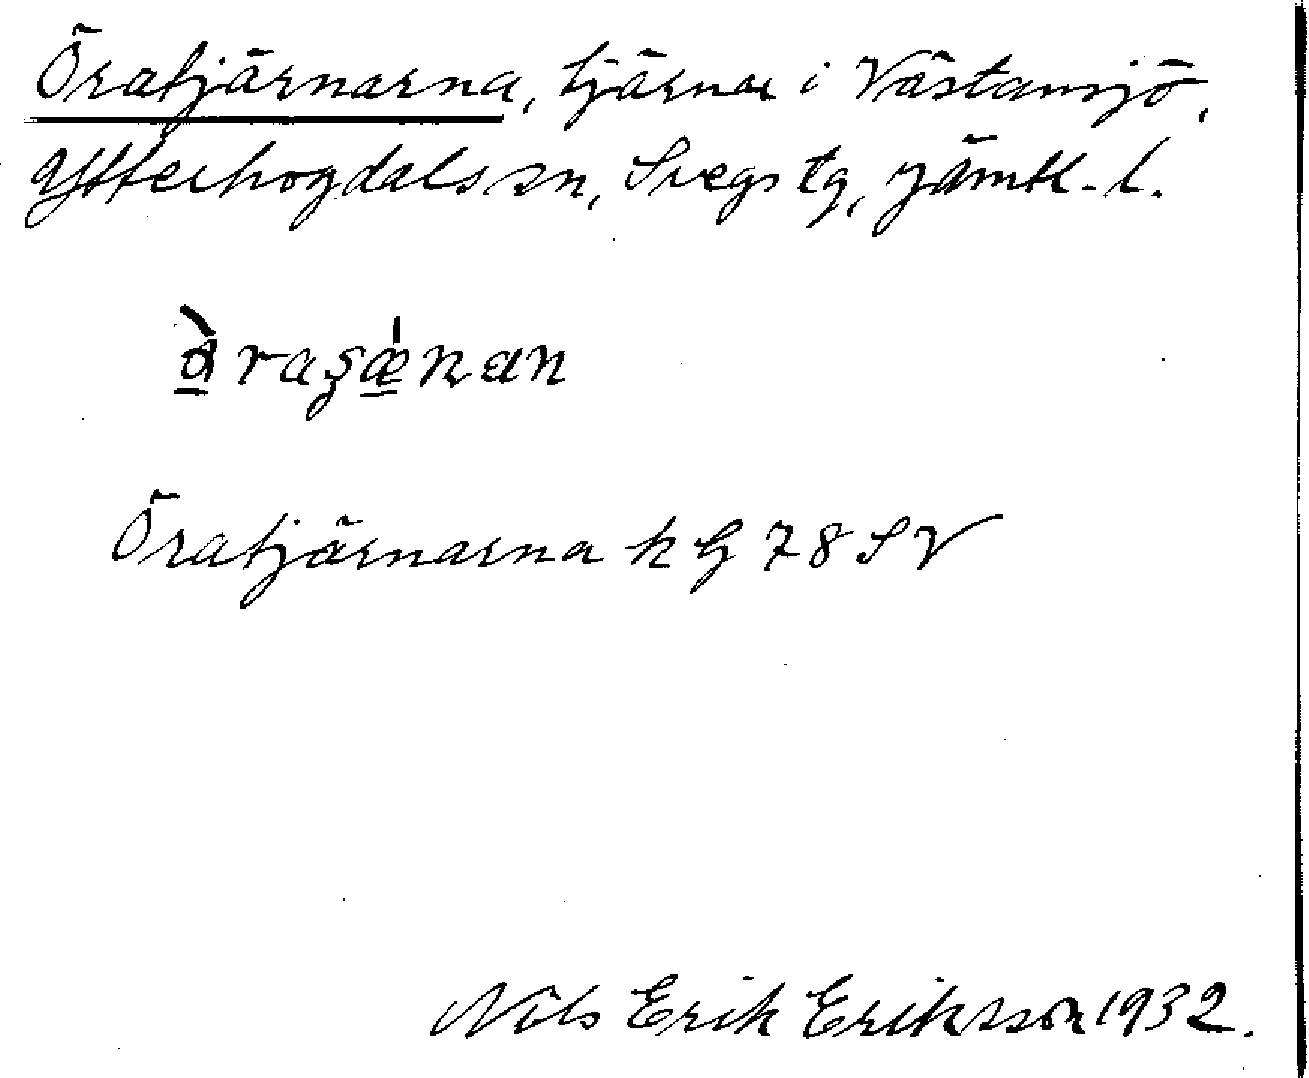 Öratjärnarna, tjärnar i Västansjö,
Ytterhogdals sn, Svegs tg, Jämtl. l.
Öratjärnarna k G 78 SV
Nils Erik Eriksson 1932.